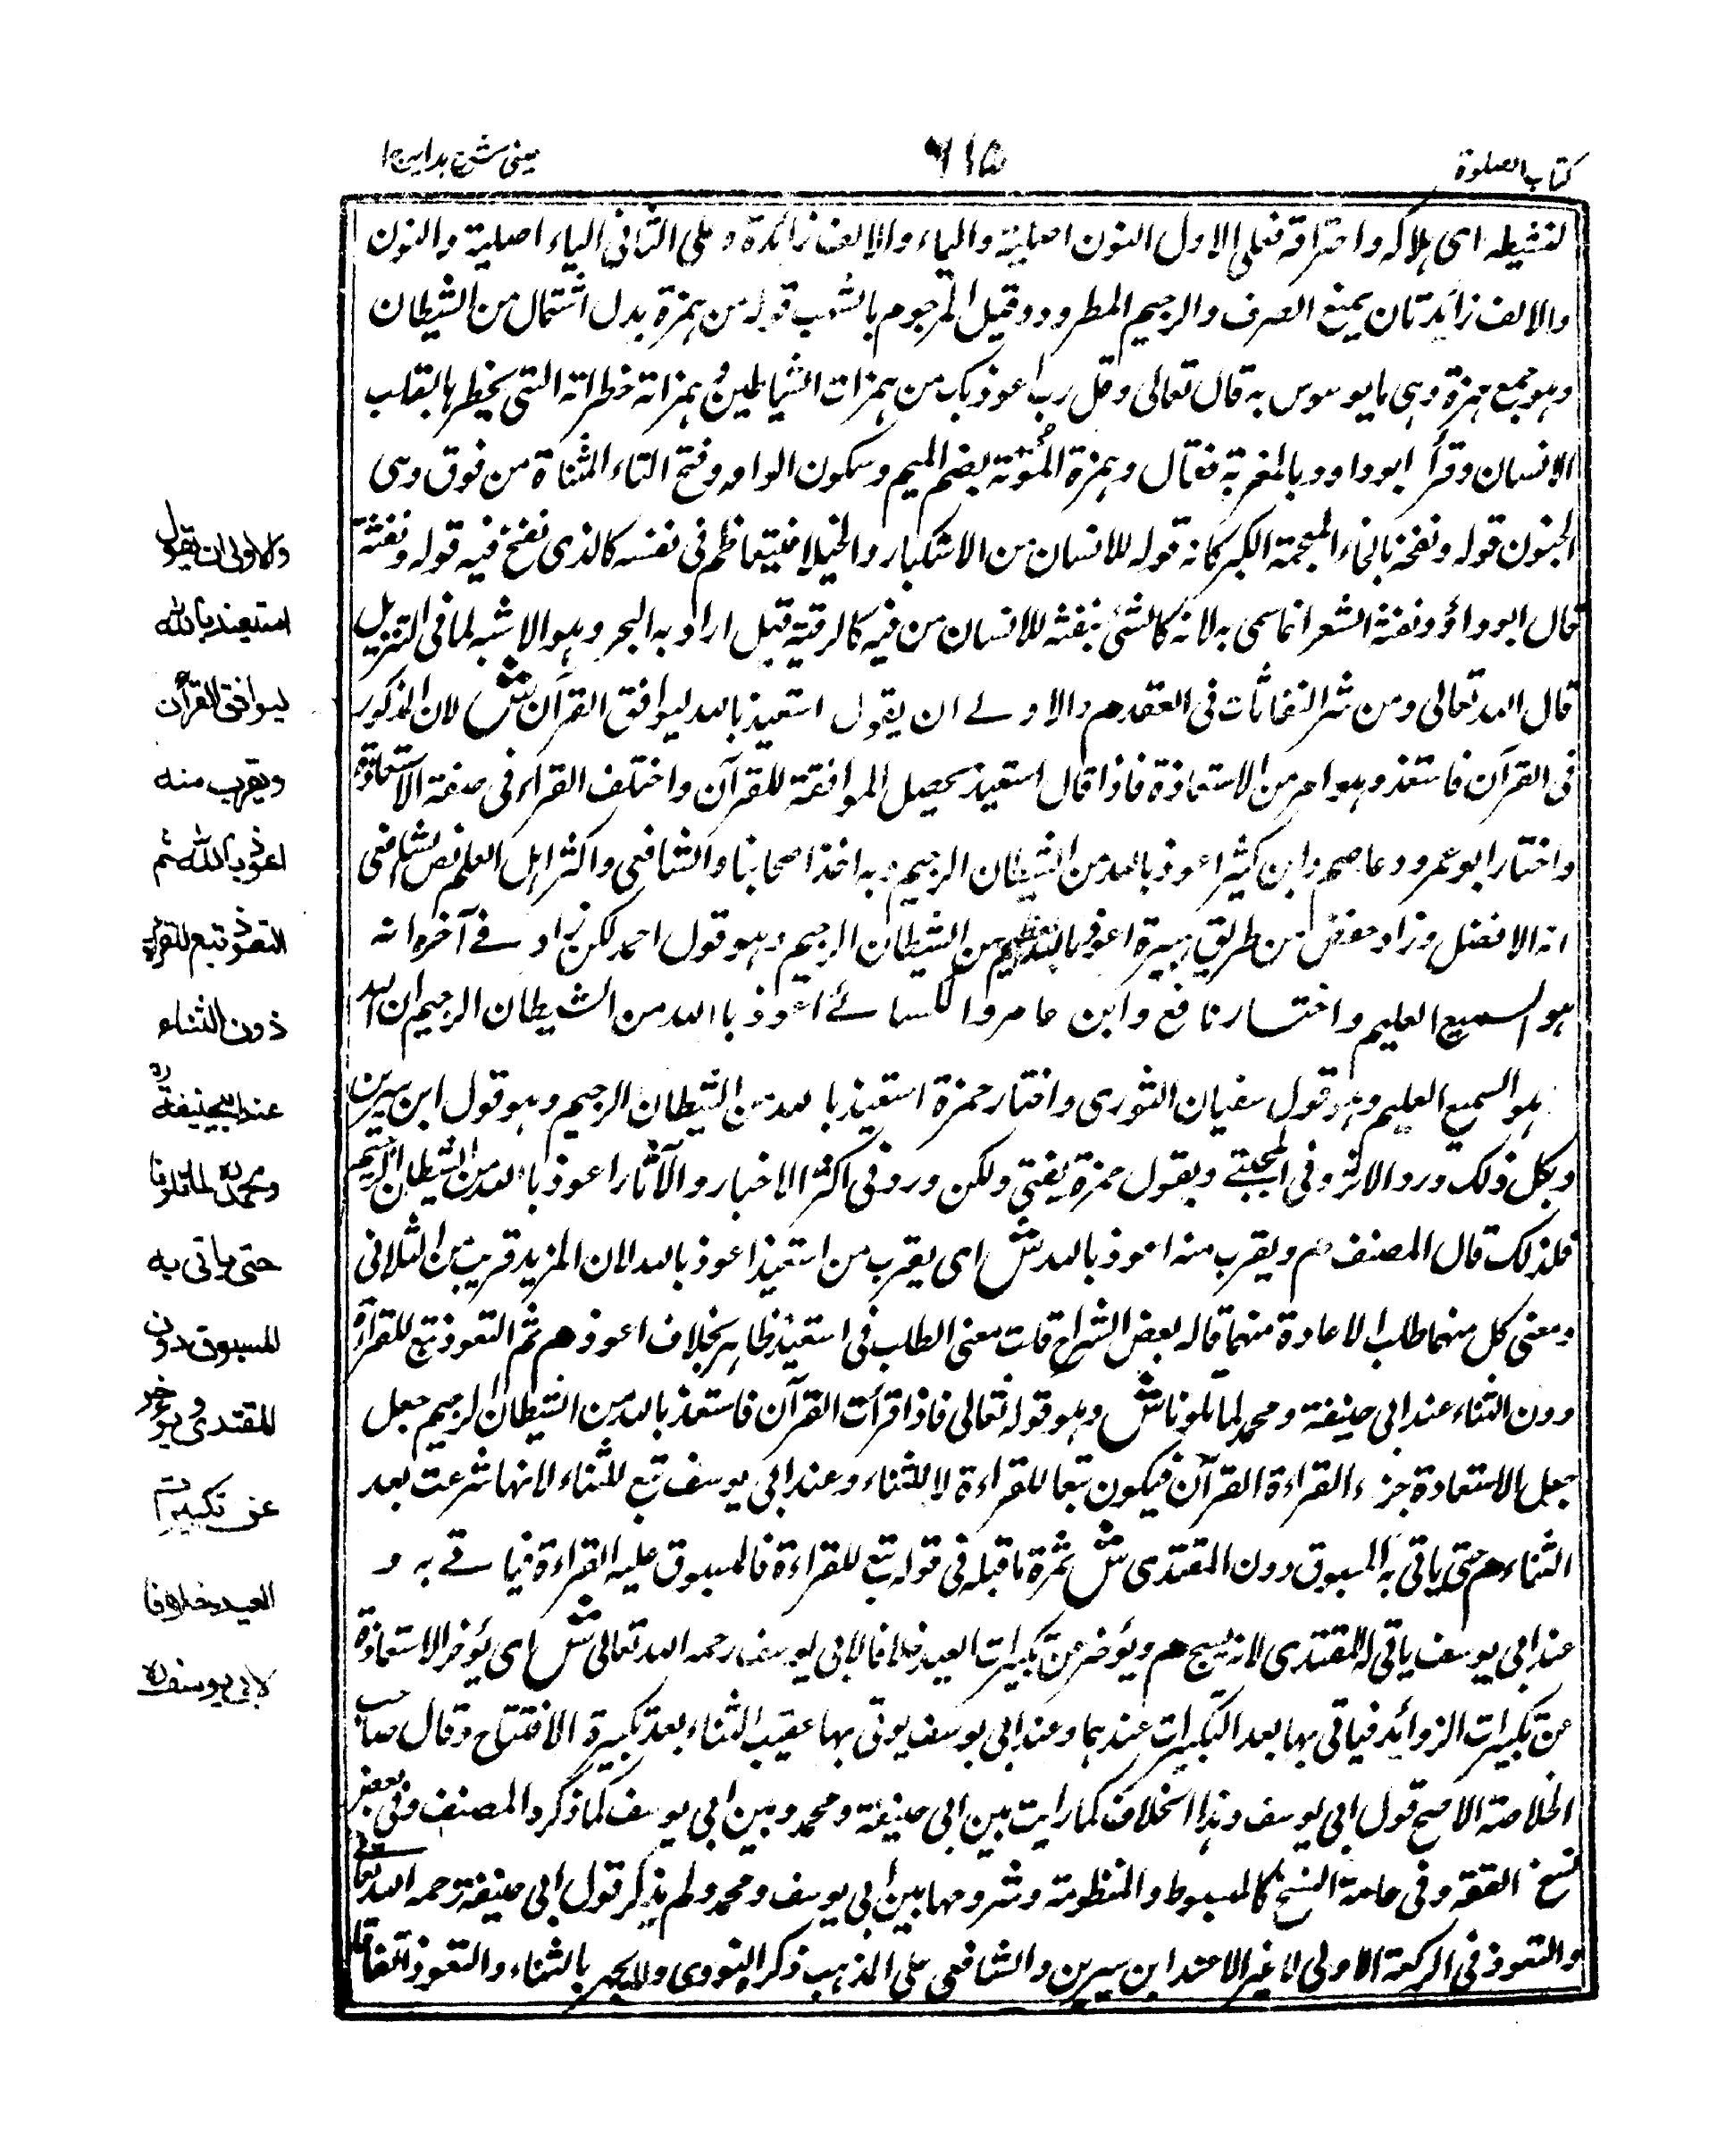 كتاب الصلوة
٦١٥
عينى شرح هداية ج ا
لتشيطه اى هلاكه واحتراقه فعلى الاول النون اصلية والياء والالف زائدة وعلى الثانى الياء اصلية والنون
والالف زائدتان يمنع الصرف والرجيم المطرود وقيل المرجوم بالشهب قوله من همزة بدل اشتمال من الشيطان
وهو جمع همزة وهى ما يوسوس به قال تعالى وقل رب اعوذ بك من همزات الشياطين وهمزاته خطراته التى يخطرها بقلب
الانسان وقرأ ابو داود بالمغربة فقال وهمزة الموتة بضم الميم وسكون الواو وفتح التاء المثناة من فوق وهى
الجنون قوله ونفخه بالخاء المعجمة الكبر كانه قوله للانسان من الاستكبار والخيلا فيتعاظم فى نفسه كالذى نفخ فيه قوله ونفثه
قال ابو داؤد ونفثة الشعر انما سمى به لانه كالشئ ينفثه للانسان من فيه كالرقية قيل اراد به السحر وهو الاشبه لما فى التنزيل
قال الله تعالى ومن شر النفاثات فى العقد هم والاولے ان يقول استعيذ بالله ليوافق القرآن ش لان المذكور
فى القرآن فاستعذ وهو امر من الاستعاذة فاذا قال استعيذ يحصل الموافقة للقرآن واختلف القراء فى صفة الاستعاذة
واختار ابو عمرو وعاصم وابن كثير اعوذ بالله من الشيطان الرجيم وبه اخذ اصحابنا والشافعى واكثر اهل العلم نص الشافعى
انه الافضل وزاد حفص من طريق هبيرة اعوذ بالله العظيم من الشيطان الرجيم وهو قول احمد لكن زاد فے آخره انه
هو السميع العليم واختار نافع وابن عامر والكسائے اعوذ بالله من الشيطان الرجيم ان الله
هو السميع العليم وهو قول سفيان الثورى واختار حمزة استعيذ بالله من الشيطان الرجيم وهو قول ابن سيرين
وبكل ذلك ورد الاثر وفى المجتبے وبقول حمزة يفتى ولكن ورد فى اكثر الاخبار والآثار اعوذ بالله من الشيطان الرجيم
فلذلك قال المصنف هم ويقرب منه اعوذ بالله ش اى يقرب من استعيذ اعوذ بالله لان المزيد قريب من الثلاثى
ومعنى كل منهما طلب الاعادة منهما قاله بعض الشراح قلت معنى الطلب فى استعيذ ظاهر بخلاف اعوذ هم ثم التعوذ تبع للقرآة
دون الثناء عند ابى حنيفة ومحمد لما تلونا ش وهو قوله تعالى فاذا قرأت القرآن فاستعذ بالله من الشيطان الرجيم جعل
جعل الاستعاذة جزء القراءة القرآن فيكون تبعا للقراءة لا للثناء وعند ابى يوسف تبع للثناء لانها شرعت بعد
الثناء هم حتى ياتى به المسبوق دون المقتدى ش ثمرة ما قبله فى قوله تبع للقراءة فالمسبوق عليه القراءة فياتے به و
عند ابى يوسف ياتى له المقتدى لانه يسبح هم ويؤخر عن تكبيرات العيد خلافا لابى يوسف رحمه الله تعالى ش اى يؤخر الاستعاذة
عن تكبيرات الزوائد فياتى بها بعد التكبيرات عندهما وعند ابى يوسف يوتى بها عقيب الثناء بعد تكبيرة الافتتاح وقال صاحب
الخلاصة الاصح قول ابى يوسف وهذا الخلاف كما رايت بين ابى حنيفة ومحمد وبين ابى يوسف كما ذكره المصنف وفى بعض
نسخ الفقه وفى عامة النسخ كالمبسوط والمنظومة وشروحها بين ابى يوسف ومحمد ولم يذكر قول ابى حنيفة رحمه الله تعالى
والتعوذ فى الركعة الاولى لا غير الا عند ابن سيرين والشافعى على المذهب ذكره النووى ولا يجهر بالثناء والتعوذ اتفاقا
والاولى ان يقول
استعيذ بالله
ليوافق القرآن
ويقرب منه
اعوذ بالله ثم
التعوذ تبع للقراءة
دون الثناء
عند ابيحنيفة رح
ومحمد رح لما تلونا
حتى ياتى به
المسبوق دون
المقتدى ويؤخر
عن تكبيرات
العيد خلافا
لابى يوسف رح